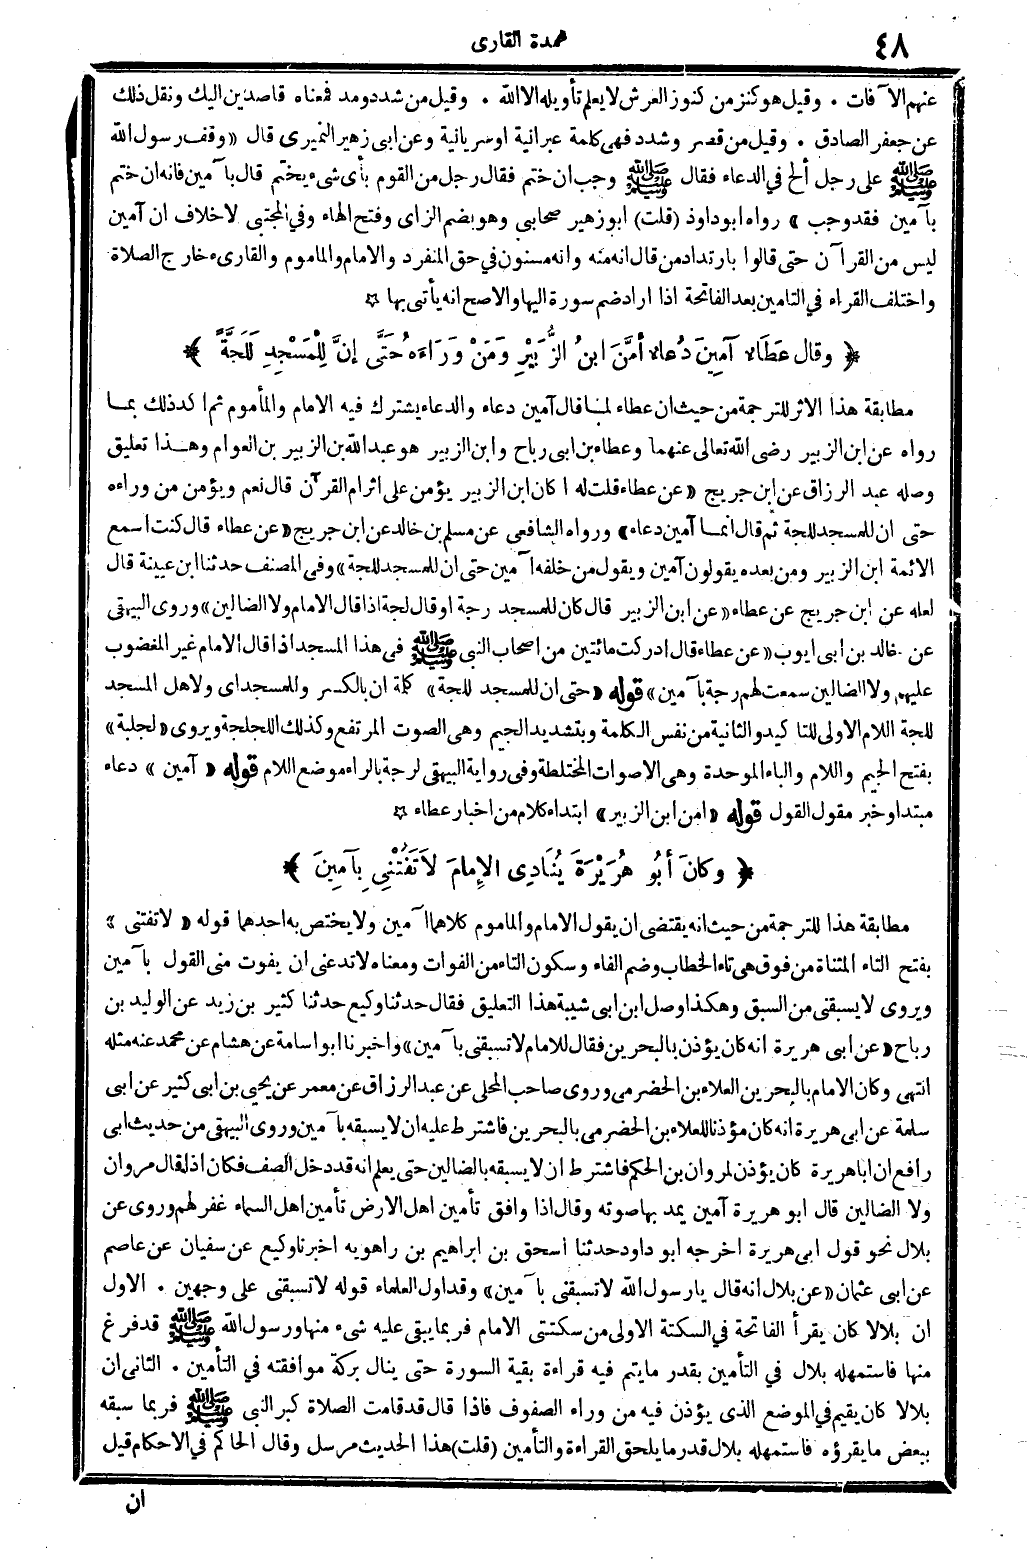 ٤٨
عمدة القارى
عنهم الآفات . وقيل هو كنز من كنوز العرش لا يعلم تأويله الا الله . وقيل من شدد ومد فمعناه قاصدين اليك ونقل ذلك
عن جعفر الصادق . وقيل من قصر وشدد فهى كلمة عبرانية او سريانية وعن ابى زهير النميرى قال « وقف رسول الله
ﷺ على رجل ألح في الدعاء فقال ﷺ وجب ان ختم فقال رجل من القوم بأى شىء يختم قال بآمين فانه ان ختم
بآمين فقد وجب » رواه ابو داود (قلت) ابو زهير صحابي وهو بضم الزاى وفتح الهاء وفي المجتبى لا خلاف ان آمين
ليس من القرآن حتى قالوا بارتداد من قال انه منه وانه مسنون في حق المنفرد والامام والماموم والقارىء خارج الصلاة
واختلف القراء في التامين بعد الفاتحة اذا اراد ضم سورة اليها والاصح انه يأتى بها ☆
﴿ وقال عَطَاءٌ آمِينَ دُعاءٌ أمَّنَ ابنُ الزُّبَيْرِ وَمَنْ وَرَاءَهُ حَتَّى إنَّ لِلْمَسْجِدِ لَلَجَّةً ﴾
مطابقة هذا الاثر للترجمة من حيث ان عطاء لما قال آمين دعاء والدعاء يشترك فيه الامام والمأموم ثم اكد ذلك بما
رواه عن ابن الزبير رضى الله تعالى عنهما وعطاء بن ابى رباح وابن الزبير هو عبد الله بن الزبير بن العوام وهذا تعليق
وصله عبد الرزاق عن ابن جريج « عن عطاء قلت له اكان ابن الزبير يؤمن على اثر ام القرآن قال نعم ويؤمن من وراءه
حتى ان للمسجد للجة ثم قال انما آمين دعاء » ورواه الشافعى عن مسلم بن خالد عن ابن جريج « عن عطاء قال كنت اسمع
الائمة ابن الزبير ومن بعده يقولون آمين ويقول من خلفه آمين حتى ان للمسجد للجة » وفى المصنف حدثنا ابن عيينة قال
لعله عن ابن جريج عن عطاء « عن ابن الزبير قال كان للمسجد رجة او قال لجة اذا قال الامام ولا الضالين » وروى البيهقى
عن خالد بن ابى ايوب « عن عطاء قال ادركت مائتين من اصحاب النبى ﷺ فى هذا المسجد اذا قال الامام غير المغضوب
عليهم ولا الضالين سمعت لهم رجة بآمين » قوله « حتى ان للمسجد للجة » كلمة ان بالكسر وللمسجد اى ولاهل المسجد
للجة اللام الاولى للتاكيد والثانية من نفس الكلمة وبتشديد الجيم وهى الصوت المرتفع وكذلك اللجلجة ويروى « لجلبة »
بفتح الجيم واللام والباء الموحدة وهى الاصوات المختلطة وفى رواية البيهقى لرجة بالراء موضع اللام قوله « آمين » دعاء
مبتدا وخبر مقول القول قوله « امن ابن الزبير » ابتداء كلام من اخبار عطاء ☆
﴿ وكانَ أبُو هُرَيْرَةَ يُنَادِى الإِمامَ لاَ تَفُتْنِى بِآمِينَ ﴾
مطابقة هذا للترجمة من حيث انه يقتضى ان يقول الامام والماموم كلاهما آمين ولا يختص به احدهما قوله « لا تفتنى »
بفتح التاء المثناة من فوق هى تاء الخطاب وضم الفاء وسكون التاء من الفوات ومعناه لا تدعنى ان يفوت منى القول بآمين
ويروى لا يسبقنى من السبق وهكذا وصل ابن ابى شيبة هذا التعليق فقال حدثنا وكيع حدثنا كثير بن زيد عن الوليد بن
رباح « عن ابى هريرة انه كان يؤذن بالبحرين فقال للامام لا تسبقنى بآمين » واخبرنا ابو اسامة عن هشام عن محمد عنه مثله
انتهى وكان الامام بالبحرين العلاء بن الحضرمى وروى صاحب المحلى عن عبد الرزاق عن معمر عن يحيى بن ابى كثير عن ابى
سلمة عن ابى هريرة انه كان مؤذنا للعلاء بن الحضرمى بالبحرين فاشترط عليه ان لا يسبقه بآمين وروى البيهقى من حديث ابى
رافع ان ابا هريرة كان يؤذن لمروان بن الحكم فاشترط ان لا يسبقه بالضالين حتى يعلم انه قد دخل الصف فكان اذا قال مروان
ولا الضالين قال ابو هريرة آمين يمد بها صوته وقال اذا وافق تأمين اهل الارض تأمين اهل السماء غفر لهم وروى عن
بلال نحو قول ابى هريرة اخرجه ابو داود حدثنا اسحق بن ابراهيم بن راهويه اخبرنا وكيع عن سفيان عن عاصم
عن ابى عثمان « عن بلال انه قال يا رسول الله لا تسبقنى بآمين » وقد اول العلماء قوله لا تسبقنى على وجهين . الاول
ان بلالا كان يقرأ الفاتحة في السكتة الاولى من سكتتى الامام فربما يبقى عليه شىء منها ورسول الله ﷺ قد فرغ
منها فاستمهله بلال في التأمين بقدر ما يتم فيه قراءة بقية السورة حتى ينال بركة موافقته في التأمين . الثانى ان
بلالا كان يقيم في الموضع الذى يؤذن فيه من وراء الصفوف فاذا قال قد قامت الصلاة كبر النبى ﷺ فربما سبقه
ببعض ما يقرؤه فاستمهله بلال قدر ما يلحق القراءة والتأمين (قلت) هذا الحديث مرسل وقال الحاكم في الاحكام قيل
ان